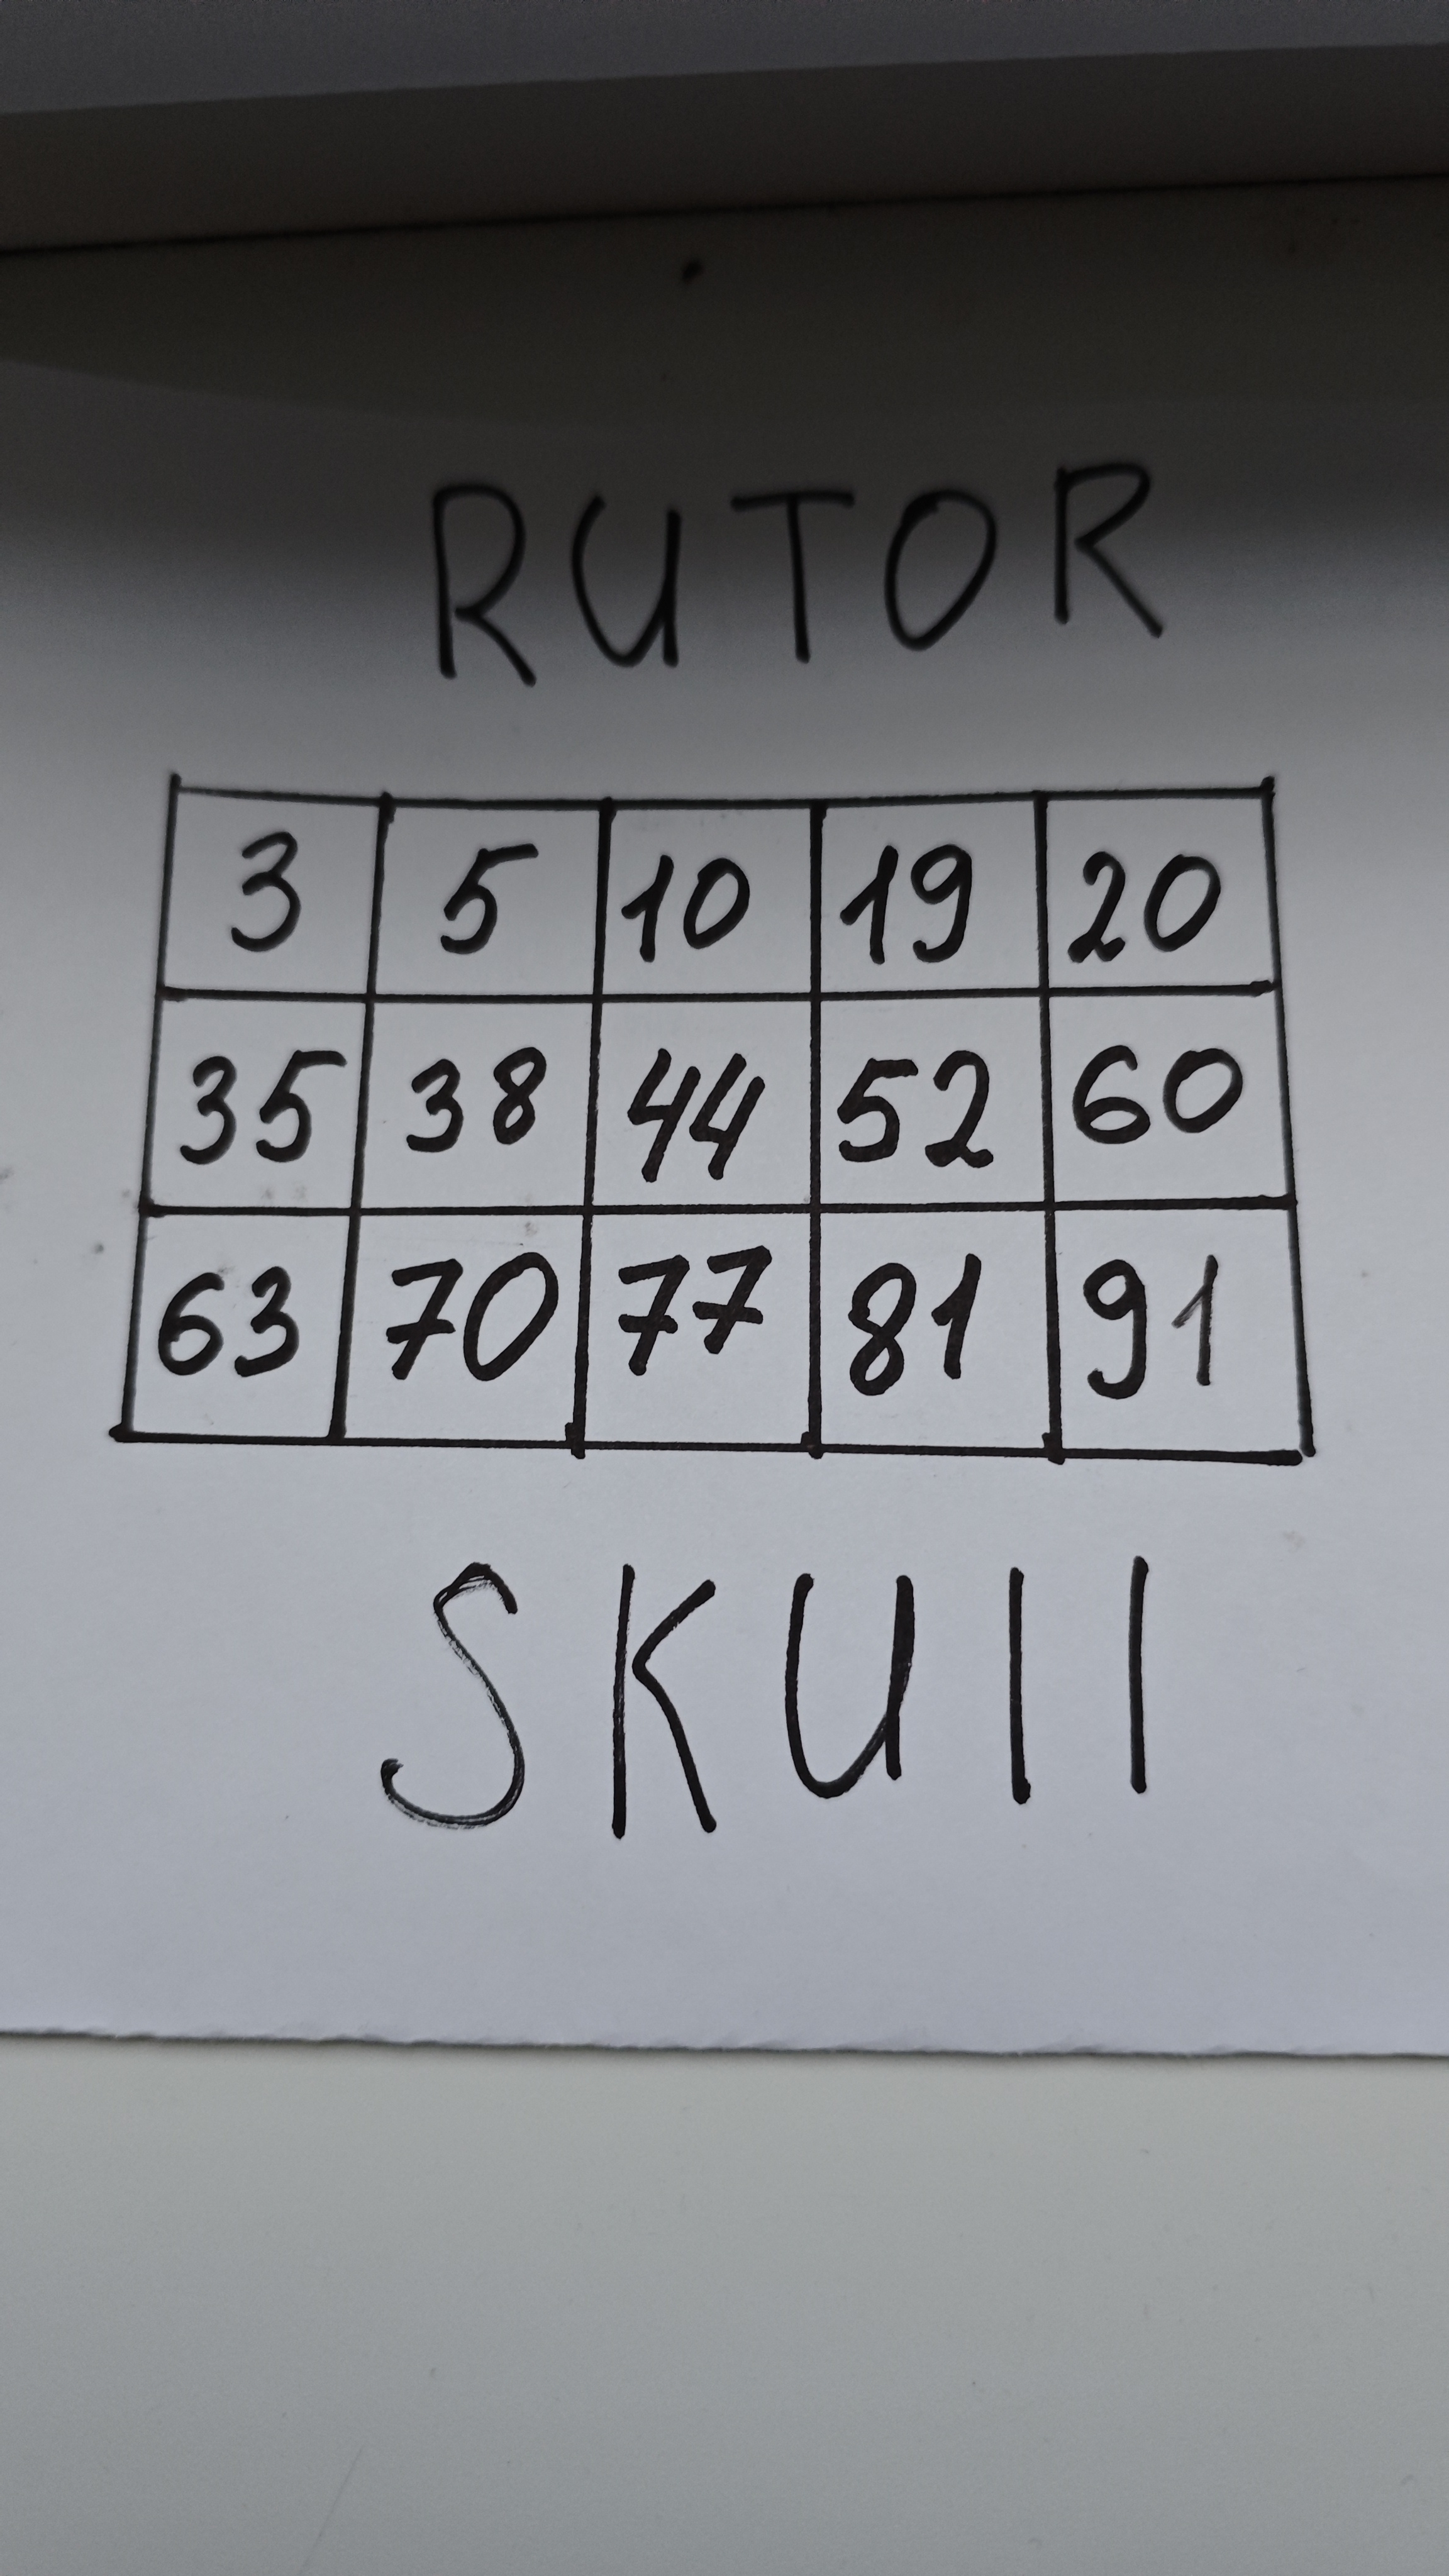 RUTOR
3 5 10 19 20
35 38 44 52 60
63 70 77 81 91
SKUll